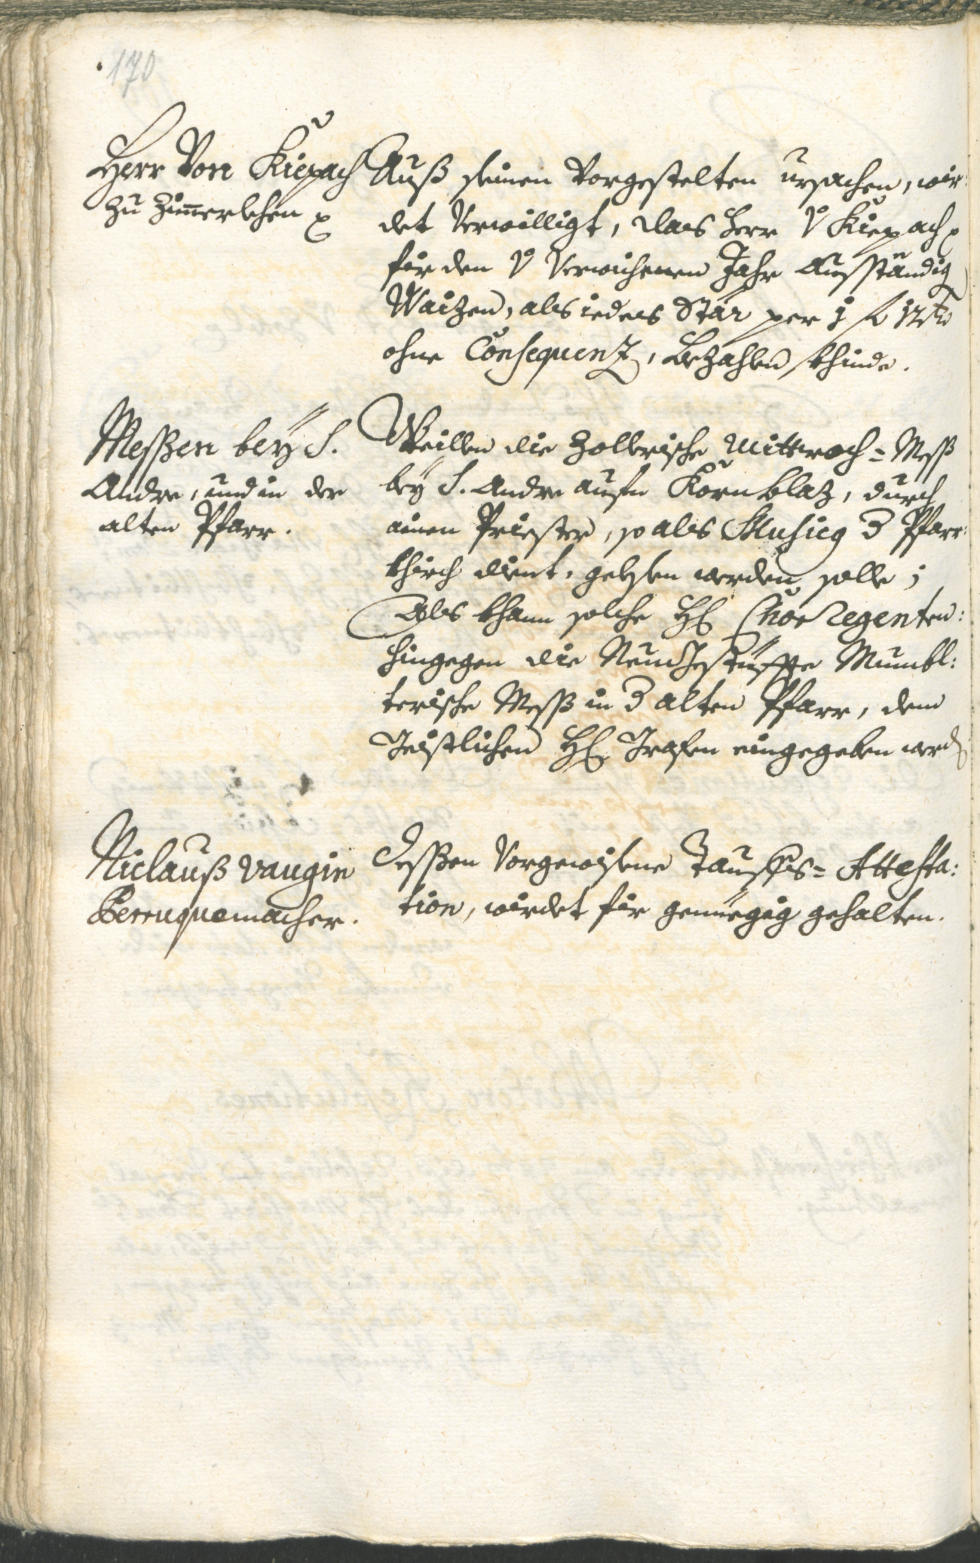 170
Herr Von Kiepach
zu Zimerlehen
Auß seinen Vorgestelten ursachen, wir
det Verwilligt, daß Herr V Kiepach
für den V Verwichenen Jahr Ausständig
Waizen, als iedes Stär per 1 f
ohne Consequenz, bezahlen khinde.
Messen bey S.
Andre, und in der
alten Pfarr.
Weillen die Zollerische Mittwoch-Mess
bey S. Andre aufm Kornblaz, durch
ainen Priester, so als Musicg Pfarr
khirch dient, gelesen werden solle;
Als khann solche H Chor Regenten:
hingegen die Neu Mumbl:
terische Mess in alten Pfarr, dem
Geistlichen H Grafen eingegeben werd
Niclauß Vaugin
Perruquemacher.
Dessen Vorgewisene Tauffs-Attesta:
tion, wirdet für genuegig gehalten.